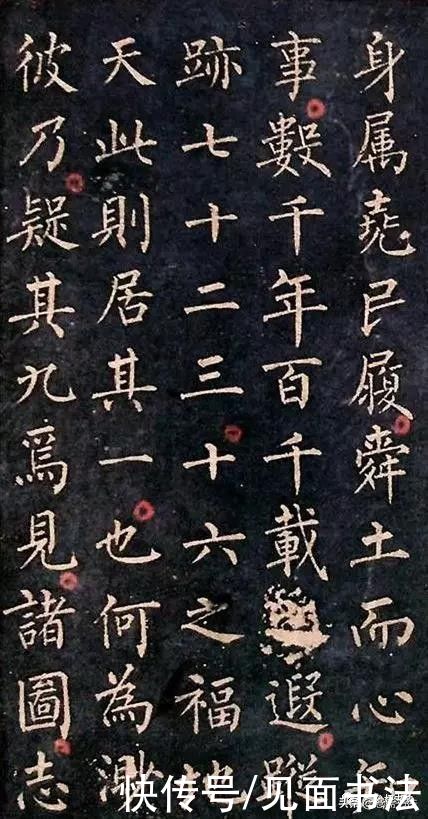 身属堯民履舜土而心
事數千年百千載遐蹤
跡七十二三十六之福地
天此則居其一也何為
彼乃疑其九焉見諸圖志
快传号/见面书法